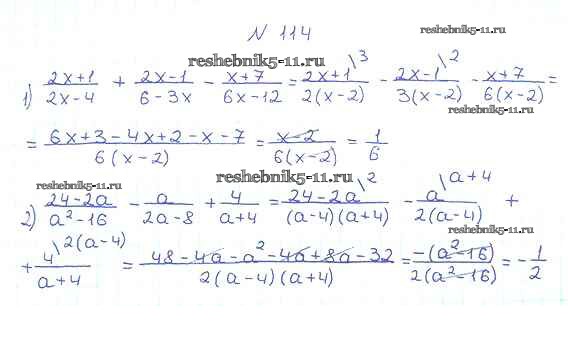 № 114
reshebnik5-11.ru
reshebnik5-11.ru
1) (2x+1)/(2x-4) + (2x-1)/(6-3x) - (x+7)/(6x-12) = (2x+1)\3/(2(x-2)) - (2x-1)\2/(3(x-2)) - (x+7)/(6(x-2)) =
reshebnik5-11.ru
= (6x+3-4x+2-x-7)/(6(x-2)) = (x-2)/(6(x-2)) = 1/6
reshebnik5-11.ru
reshebnik5-11.ru
2) (24-2a)/(a²-16) - a/(2a-8) + 4/(a+4) = (24-2a)\2/((a-4)(a+4)) - a\a+4/(2(a-4)) +
reshebnik5-11.ru
+ 4\2(a-4)/(a+4) = (48-4a-a²-4a+8a-32)/(2(a-4)(a+4)) = -(a²-16)/(2(a²-16)) = -1/2